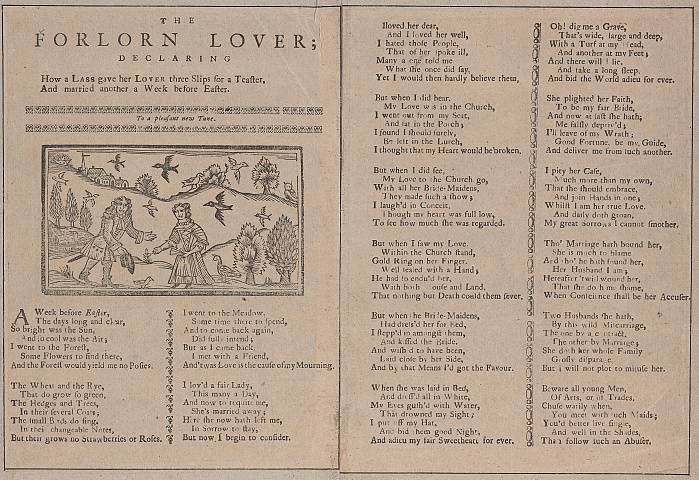 THE
FORLORN LOVER;
DECLARING
How a LASS gave her LOVER three Slips for a Teaster,
And married another a Week before Easter.
To a pleasant new Tune.
A Week before Easter,
The days long and clear,
So bright was the Sun,
And so cool was the Air;
I went to the Forest,
Some Flowers to find there,
And the Forest would yield me no Posies.
The Wheat and the Rye,
That do grow so green,
The Hedges and Trees,
In their several Coats;
The small Birds do sing,
In their changeable Notes,
But there grows no Strawberries or Roses.
I went to the Meadow,
Some time there to spend,
And to come back again,
Did fully intend;
But as I came back,
I met with a Friend,
And 'twas Love is the cause of my Mourning.
I lov'd a fair Lady,
This many a Day,
And now to requite me,
She's married away;
Here she now hath left me,
In Sorrow to stay,
But now I begin to consider.
I loved her dear,
And I loved her well,
I hated those People,
That of her spoke ill,
Many a one told me
What she once did say,
Yet I would then hardly believe them,
But when I did hear,
My Love was in the Church,
I went out from my Seat,
And sat in the Porch;
I found I should surely,
Be left in the Lurch,
I thought that my Heart would be broken.
But when I did see,
My Love to the Church go,
With all her Bride-Maidens,
They made such a show;
I laugh'd in Conceit,
Though my heart was full low,
To see how much she was regarded.
But when I saw my Love
Within the Church stand,
Gold Ring on her Finger.
Well sealed with a Hand;
He had so endu'd her,
With both House and Land,
That nothing but Death could them sever,
But when the Bride-Maidens,
Had dress'd her for Bed,
I stepp'd in amongst them,
And kissed the Bride.
And wish'd to have been,
Laid close by her Side,
And by that Means I'd got the Favour.
When she was laid in Bed,
And dress'd all in White,
My Eyes gush'd with Water,
That drowned my Sight;
I put off my Hat,
And bid them good Night,
And adieu my fair Sweetheart for ever.
Oh! dig me a Grave,
That's wide, large and deep,
With a Turf at my Head,
And another at my Feet;
And there will I lie,
And take a long sleep,
And bid the World adieu for ever.
She plighted her Faith,
To be my fair Bride,
And now at last she hath;
Me falsly depriv'd;
I'll leave of my Wrath;
Good Fortune, be my Guide,
And deliver me from such another.
I pity her Case,
Much more than my own,
That she should embrace,
And join Hands in one;
Whilst I am her true Love,
And daily doth groan,
My great Sorrows I cannot smother.
Tho' Marriage hath bound her,
She is much to blame
And tho' he hath found her,
Her Husband I am;
Hereafter 'twill wound her,
That she do h me shame,
When Conscience shall be her Accuser.
Two Husbands she hath,
By this wild Miscarriage,
The one by a contract,
The other by Marriage;
She doth her whole Family
Grosly disparage.
But I will not plot to misuse her.
Beware all young Men,
Of Arts, or of Trades,
Chuse warily when,
You meet with such Maids;
You'd better live single,
And well in the Shades,
Than follow such an Abuser,